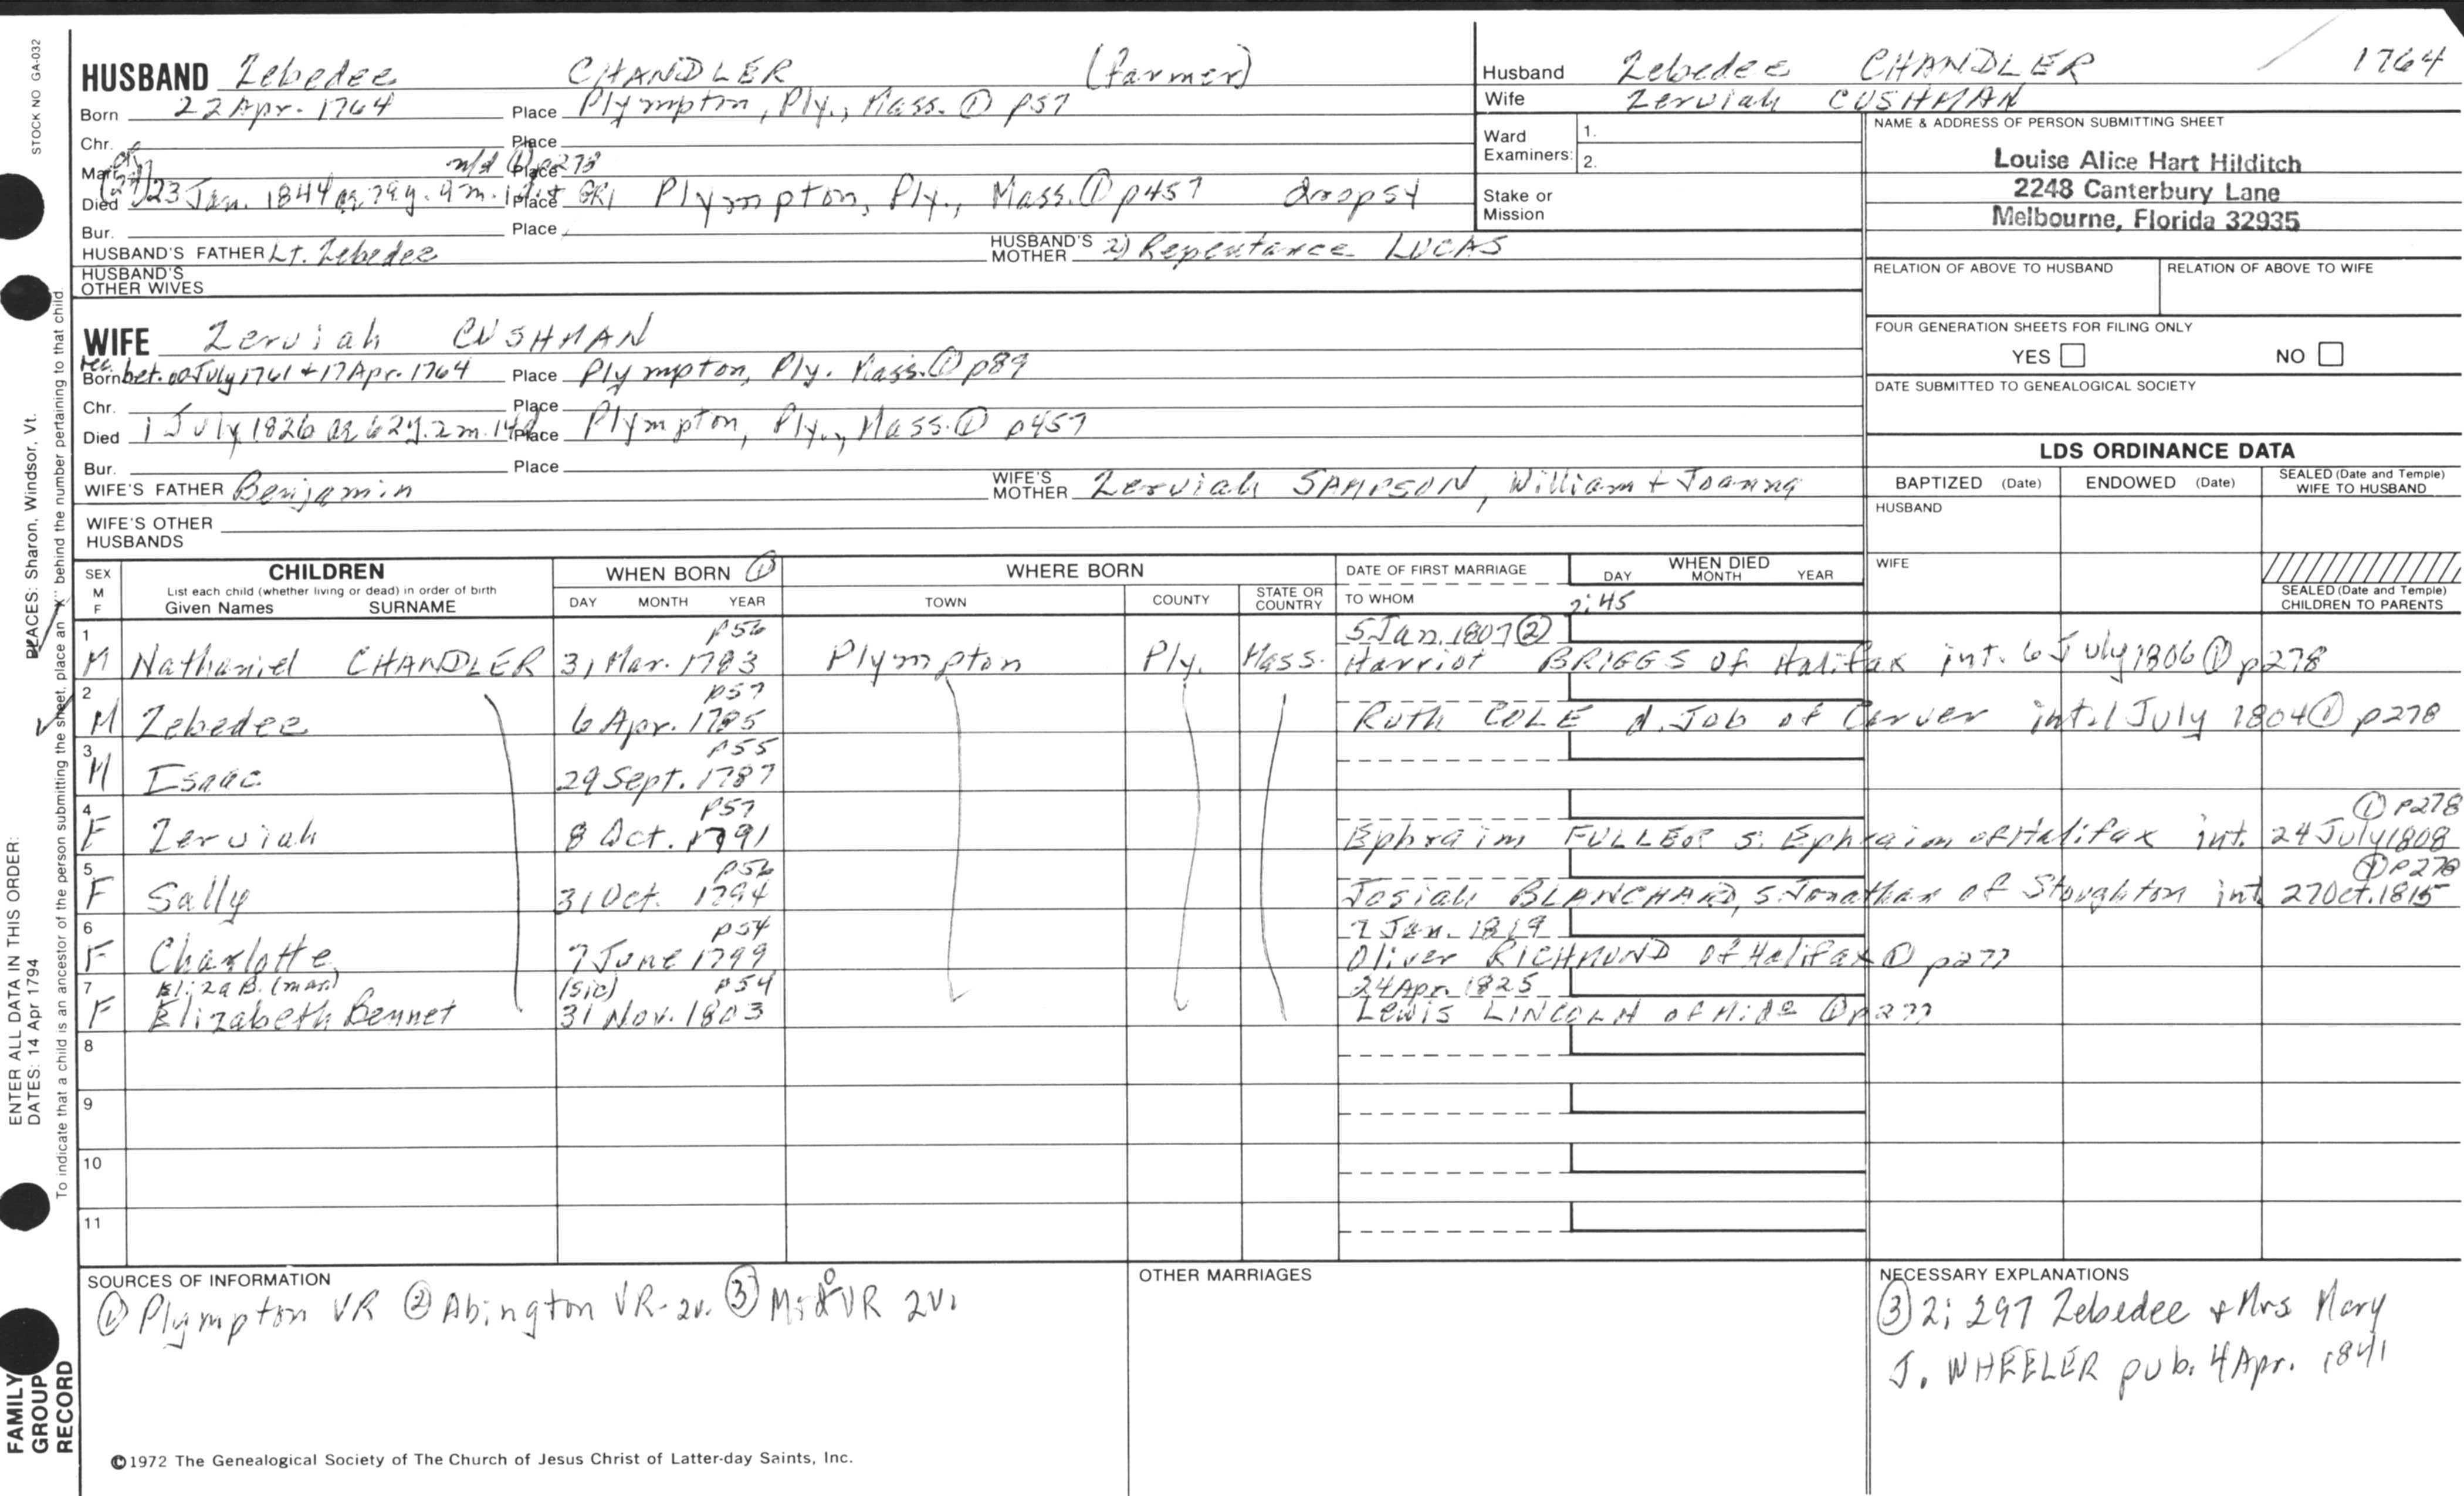 STOCK NO GA-032
HUSBAND Zebedee CHANDLER (farmer)
Born 22 Apr. 1764 Place Plympton, Ply., Mass. ① p57
Chr. Place
Marr. n/d ① p278 Place
Died (24) 23 Jan. 1844 ae 79y. 9m. 1d Place GR1 Plympton, Ply., Mass. ① p457 dropsy
Bur. Place
HUSBAND'S FATHER Lt. Zebedee HUSBAND'S MOTHER 2) Repentance LUCAS
HUSBAND'S OTHER WIVES
WIFE Zerviah CUSHMAN
rec.
Born bet. 02 July 1761 + 17 Apr. 1764 Place Plympton, Ply. Mass. ① p89
Chr. Place
Died 1 July 1826 ae 62y. 2m. 14d Place Plympton, Ply., Mass. ① p457
Bur. Place
WIFE'S FATHER Benjamin WIFE'S MOTHER Zerviah SAMPSON, William + Joanna
WIFE'S OTHER HUSBANDS
Husband Zebedee CHANDLER 1764
Wife Zerviah CUSHMAN
Ward Examiners: 1. 2.
Stake or Mission
NAME & ADDRESS OF PERSON SUBMITTING SHEET
Louise Alice Hart Hilditch
2248 Canterbury Lane
Melbourne, Florida 32935
RELATION OF ABOVE TO HUSBAND RELATION OF ABOVE TO WIFE
FOUR GENERATION SHEETS FOR FILING ONLY
YES NO
DATE SUBMITTED TO GENEALOGICAL SOCIETY
LDS ORDINANCE DATA
BAPTIZED (Date) ENDOWED (Date) SEALED (Date and Temple) WIFE TO HUSBAND
HUSBAND
WIFE
SEALED (Date and Temple) CHILDREN TO PARENTS
SEX M F CHILDREN List each child (whether living or dead) in order of birth Given Names SURNAME
WHEN BORN ① DAY MONTH YEAR
WHERE BORN TOWN COUNTY STATE OR COUNTRY
DATE OF FIRST MARRIAGE TO WHOM
WHEN DIED DAY MONTH YEAR
2:45
1 p56 5 Jan. 1807 ②
M Nathaniel CHANDLER 31 Mar. 1783 Plympton Ply. Mass. Harriot BRIGGS of Halifax int. 6 July 1806 ① p278
2 p57
M Zebedee 6 Apr. 1785 Ruth COLE d. Job of Carver int. 1 July 1804 ① p278
3 p55
M Isaac 29 Sept. 1787
4 p57 ① p278
F Zerviah 8 Oct. 1791 Ephraim FULLER s. Ephraim of Halifax int. 24 July 1808
5 p56 ① p278
F Sally 31 Oct. 1794 Josiah BLANCHARD, s. Jonathan of Stoughton int 27 Oct. 1815
6 p54 7 Jan. 1819
F Charlotte 7 June 1799 Oliver RICHMOND of Halifax ① p277
7 Eliza B. (mar) (sic) p54 24 Apr. 1825
F Elizabeth Bennet 31 Nov. 1803 Lewis LINCOLN of Mido ① p277
8
9
10
11
SOURCES OF INFORMATION
① Plympton VR ② Abington VR-2v. ③ Mido VR 2v.
OTHER MARRIAGES
NECESSARY EXPLANATIONS
③ 2; 297 Zebedee + Mrs Mary
J. WHEELER pub. 4 Apr. 1841
©1972 The Genealogical Society of The Church of Jesus Christ of Latter-day Saints, Inc.
FAMILY GROUP RECORD
ENTER ALL DATA IN THIS ORDER:
DATES: 14 Apr 1794
PLACES: Sharon, Windsor, Vt.
To indicate that a child is an ancestor of the person submitting the sheet, place an "X" behind the number pertaining to that child.